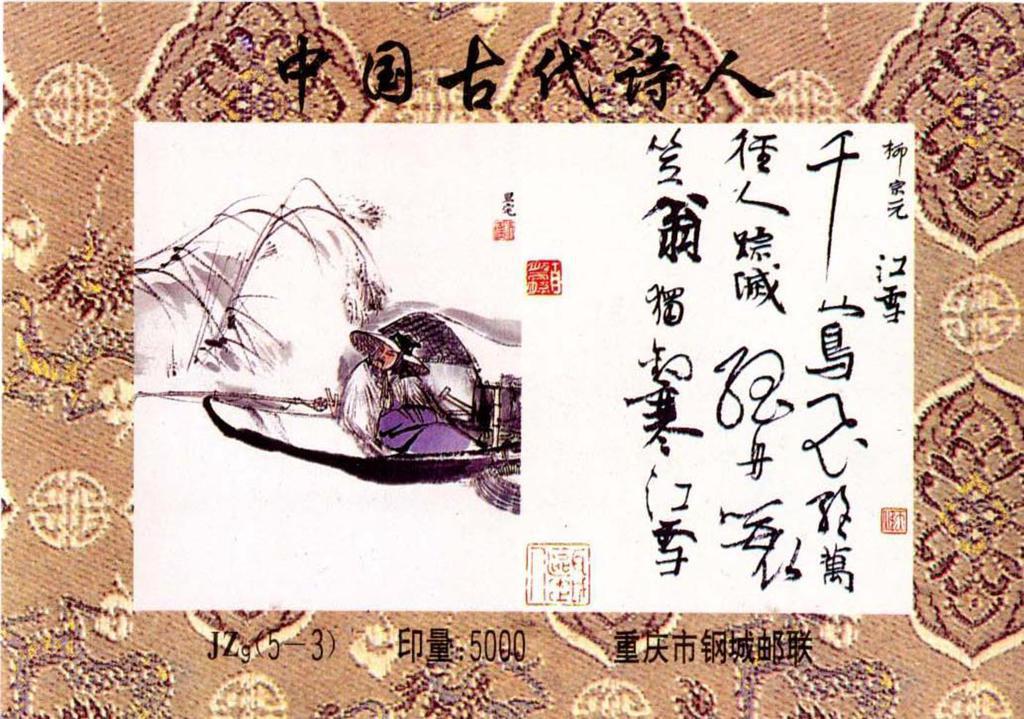 中国古代诗人
柳宗元 江雪
千山鳥飞絕萬
徑人踪滅孤舟蓑
笠翁獨釣寒江雪
JZg(5-3) 印量:5000 重庆市钢城邮联